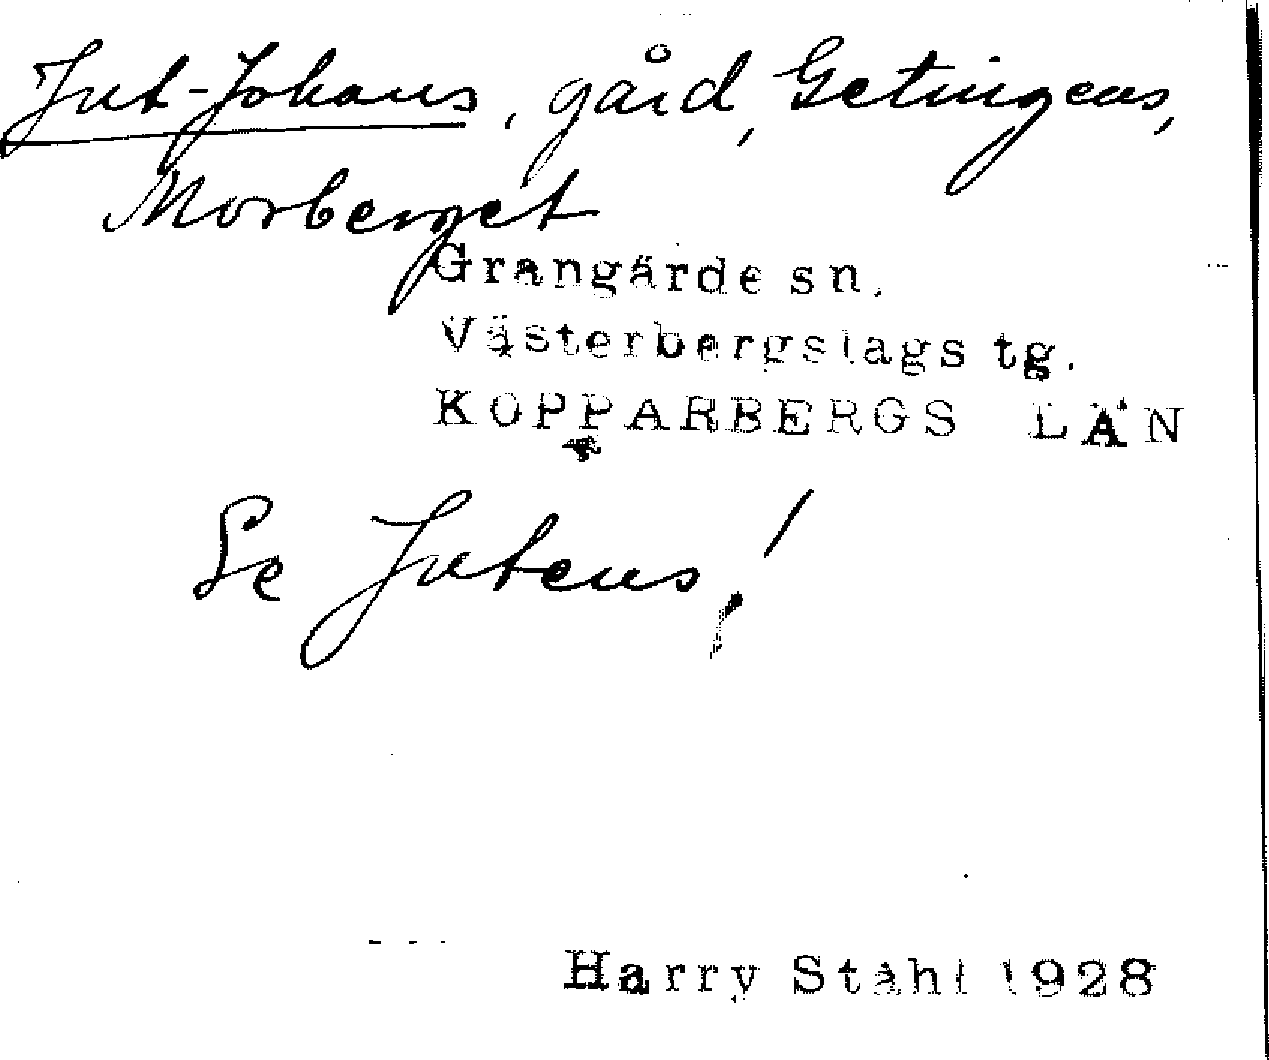 Jut-Johans, gård, Getingens,
Morberget
Grangärde sn.
Västerbergslags tg.
KOPPARBERGS LÄN
Se Jutens!
Harry Ståhl 1928